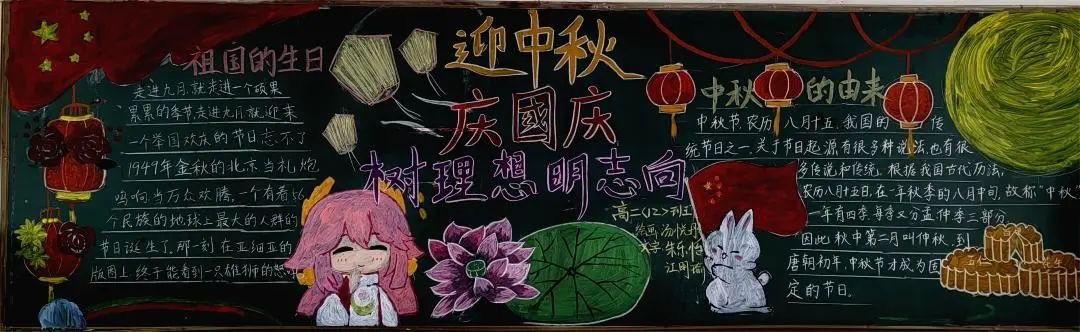 祖国的生日
走进九月,就走进一个硕果
累累的季节,走进九月,就迎来
一个举国欢庆的节日忘不了
1949年金秋的北京当礼炮
鸣响,当万众欢腾,一个有着56
个民族的地球上最大的人群的
节日诞生了,那一刻在亚细亚的
版图上终于能看到一只雄狮的怒吼
迎中秋
庆國庆
树理想明志向
高二〈12〉班
绘画:
文字:朱乐怡
中秋节的由来
中秋节,农历八月十五,我国的传
统节日之一,关于节日起源有很多种说法,也有很
多传说和传统,根据我国古代历法,
农历八月十五日,在一年秋季的八月中间,故称"中秋"
一年有四季,每季又分孟仲季三部分,
因此秋中第二月叫仲秋,到
唐朝初年,中秋节才成为固
定的节日。
五仁